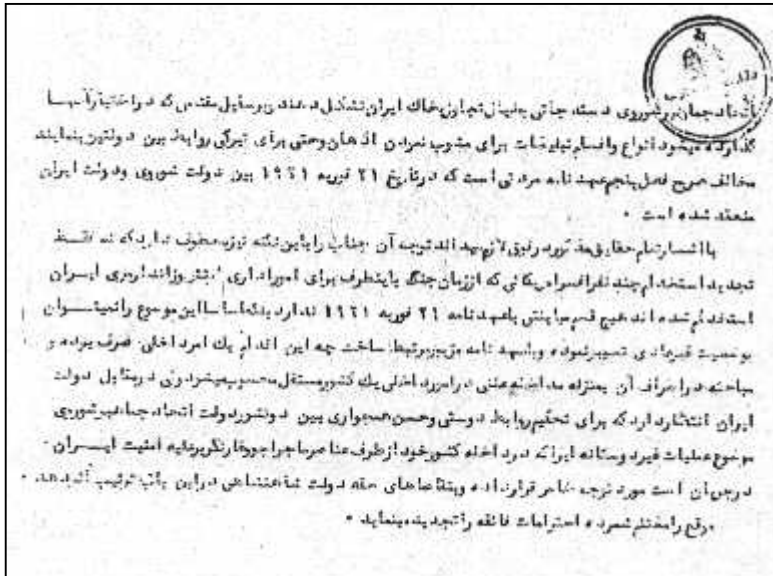 اتحاد جماهیر شوروی دسته جاتی بخیال تجاوز بخاک ایران تشکیل دهند و بوسایل مقتضی که در اختیار آنها
گذارده میشود انواع و اقسام تبلیغات برای مشوب نمودن اذهان و حتی برای تیرگی روابط بین دولتین بنمایند
مخالف صریح فصل پنجم عهد نامه مودتی است که در تاریخ ۲۱ فوریه ۱۹۲۱ بین دولت شوروی و دولت ایران
منعقد شده است ۰
با اشعار تمام حقایق مذکوره در فوق لازم میداند توجه آن جناب را باین نکته نیز معطوف دارد که نه فقط
تجدید استخدام چند نفر افسر امریکائی که از زمان جنگ باینطرف برای امور اداری ارتش و ژاندارمری ایران
استخدام شده اند هیچ قسم مباینتی با عهد نامه ۲۱ فوریه ۱۹۲۱ ندارد بلکه اساسا این موضوع را نمیتوان
بوضعیت غیرعادی تعبیر نموده و با عهد نامه مزبور مرتبط ساخت چه این اقدام یک امر داخلی صرف بوده و
مباحثه در اطراف آن بمنزله مداخله علنی در امور داخلی یک کشور مستقل محسوب میشود ولی در مقابل دولت
ایران انتظار دارد که برای تحکیم روابط دوستی و حسن همجواری بین دو کشور دولت اتحاد جماهیر شوروی
موضوع عملیات غیر دوستانه ایرا که در داخله کشور خود از طرف عناصر ماجراجو و فارنگر بر علیه امنیت ایران
در جریان است مورد توجه خاص قرار داده و بتقاضاهای حقه دولت شاهنشاهی در این باب ترتیب اثر بدهد ۰
موقع را مغتنم شمرده احترامات فائقه را تجدید مینماید ۰